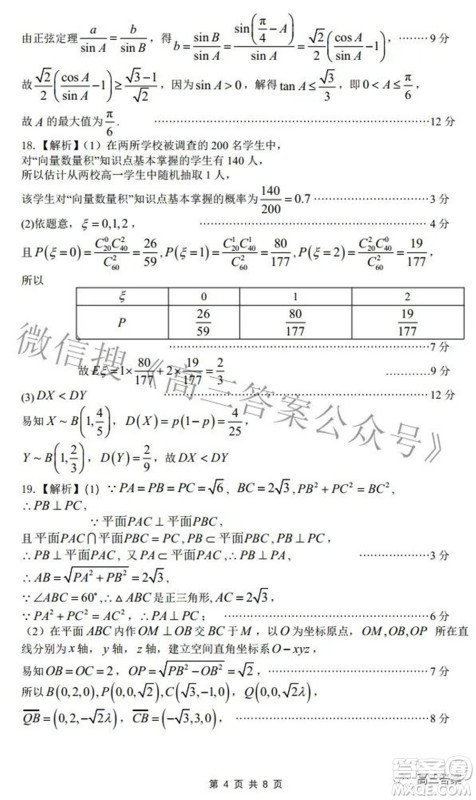 由正弦定理 a/sin A = b/sin B，得 b = sin B/sin A = sin(π/4 − A)/sin A = √2/2 (cos A/sin A − 1)，········9 分
故 √2/2 (cos A/sin A − 1) ≥ (√3−1)/√2，因为 sin A > 0，解得 tan A ≤ √3/3，即 0 < A ≤ π/6，
故 A 的最大值为 π/6．··········12 分
18.【解析】（1）在两所学校被调查的 200 名学生中，
对“向量数量积”知识点基本掌握的学生有 140 人，
所以估计从两校高一学生中随机抽取 1 人，
该学生对“向量数量积”知识点基本掌握的概率为 140/200 = 0.7 ··········3 分
(2)依题意，ξ = 0,1,2， ··········4 分
且 P(ξ=0) = C₂⁰C₄₀²/C₆₀² = 26/59，P(ξ=1) = C₂₀¹C₄₀¹/C₆₀² = 80/177，P(ξ=2) = C₂₀²C₄₀⁰/C₆₀² = 19/177，
所以
ξ 0 1 2
P 26/59 80/177 19/177
··········7 分
故 Eξ = 1× 80/177 + 2× 19/177 = 2/3 ··········9 分
(3) DX < DY ··········12 分
易知 X ~ B(1, 4/5)，D(X) = p(1−p) = 4/25，
Y ~ B(1, 2/3)，D(Y) = 2/9，故 DX < DY
19.【解析】（1）∵ PA = PB = PC = √6，BC = 2√3，PB² + PC² = BC²，
∴ PB ⊥ PC，
∵ 平面PAC ⊥ 平面PBC，
且 平面PAC ∩ 平面PBC = PC, PB ⊂ 平面PBC，
∴ PB ⊥ 平面PAC，又 PA ⊂ 平面PAC，∴ PB ⊥ PA， ··········3 分
∴ AB = √(PA² + PB²) = 2√3，
∵ ∠ABC = 60°，∴ △ABC 是正三角形, AC = 2√3，
∵ PA² + PC² = AC²，∴ PA ⊥ PC； ··········6 分
（2）在平面 ABC 内作 OM ⊥ OB 交 BC 于 M，以 O 为坐标原点，OM, OB, OP 所在直
线分别为 x 轴，y 轴，z 轴，建立空间直角坐标系 O − xyz，
易知 OB = OC = 2，OP = √(PB² − OB²) = √2， ··········7 分
所以 B(0,2,0), P(0,0,√2), C(√3,−1,0)，Q(0,0,√2λ)，
QB = (0,2,−√2λ)，CB = (−√3,3,0)， ··········8 分
第 4 页 共 8 页
微信搜《高三答案公众号》
高三答案